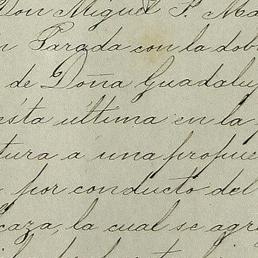 Don Miguel P. Ma
n Parada con la dob
de Doña Guadalup
ésta última en la
tura a una propue
por conducto del
caza, la cual se agr